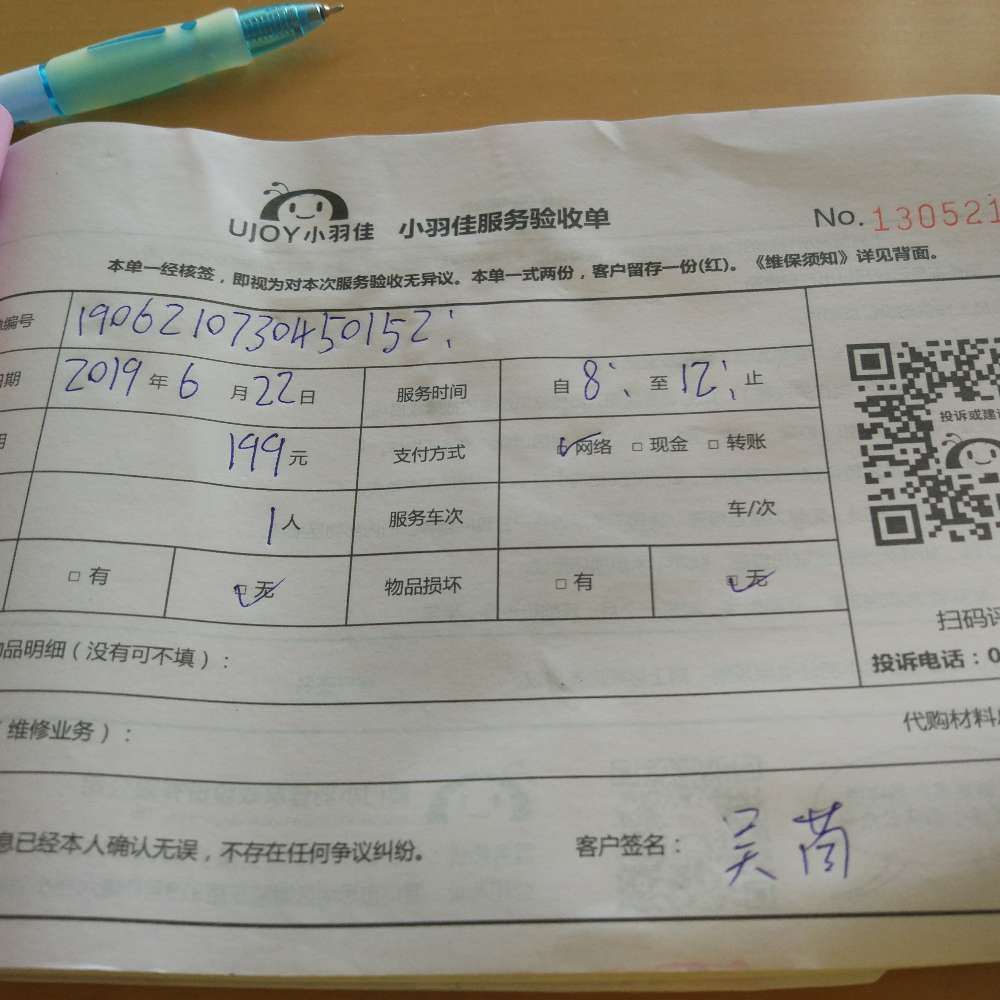 UJOY小羽佳 小羽佳服务验收单 No. 130521
本单一经核签，即视为对本次服务验收无异议。本单一式两份，客户留存一份(红)。《维保须知》详见背面。
编号 1906210730450152；
期 2019年6月22日 服务时间 自8：至12：止
199元 支付方式 ☑网络 □现金 □转账
1人 服务车次 车/次
□有 ☑无 物品损坏 □有 ☑无
投诉或建
扫码评
品明细（没有可不填）：
投诉电话：0
（维修业务）：
代购材料
息已经本人确认无误，不存在任何争议纠纷。 客户签名：吴